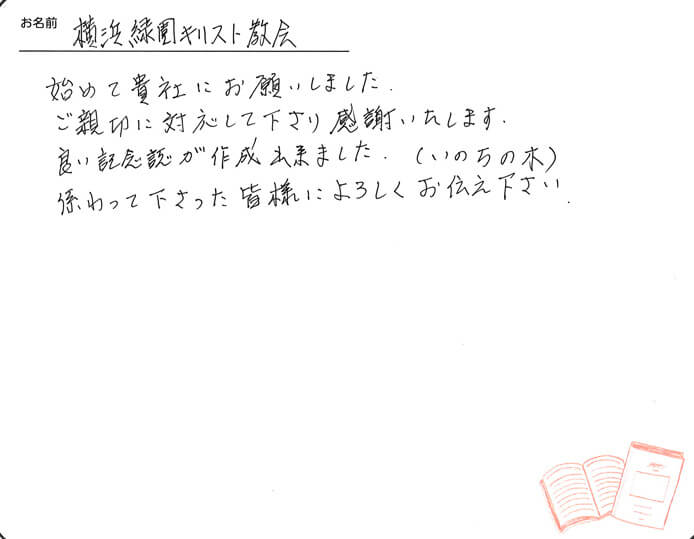 お名前 横浜緑園キリスト教会
始めて貴社にお願いしました.
ご親切に対応して下さり感謝いたします.
良い記念誌が作成出来ました.(いのちの木)
係わって下さった皆様によろしくお伝え下さい.